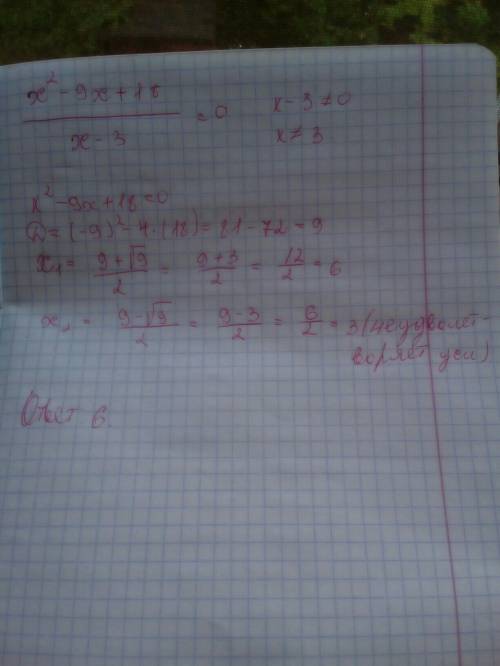 x² - 9x + 18 / x - 3 = 0   x - 3 ≠ 0
x ≠ 3
x² - 9x + 18 = 0
D = (-9)² - 4·(18) = 81 - 72 = 9
x₁ = (9 + √9)/2 = (9 + 3)/2 = 12/2 = 6
x₂ = (9 - √9)/2 = (9 - 3)/2 = 6/2 = 3 (не удовлет-
воряет усл)
Ответ 6